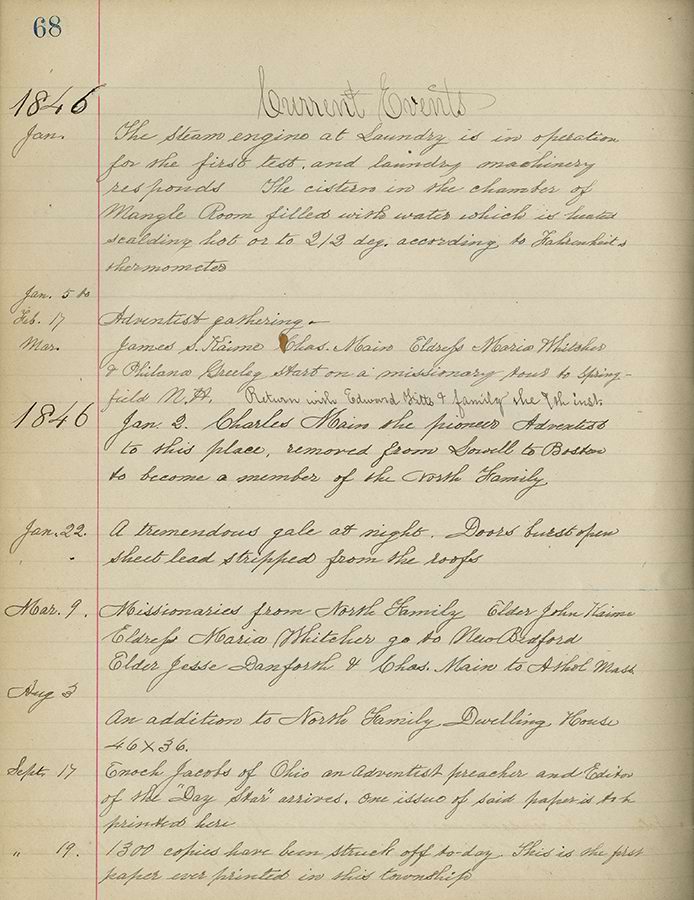 68
Current Events
1846
Jan. The steam engine at Laundry is in operation
for the first test, and laundry machinery
responds The cistern in the chamber of
Mangle Room filled with water which is heated
scalding hot or to 212 deg. according to Fahrenheit's
thermometer
Jan. 5 to
Feb. 17 Adventist gathering.
Mar. James S. Kaime Chas. Main Eldress Maria Whitcher
& Philana Greeley start on a missionary tour to Spring-
field N.H. Return with Edward Fitts & family the 9th inst.
1846 Jan. 2. Charles Main the pioneer Adventist
to this place, removed from Lowell to Boston
to become a member of the North Family
Jan. 22. A tremendous gale at night. Doors burst open
sheet lead stripped from the roofs
Mar. 9. Missionaries from North Family Elder John Kaime
Eldress Maria Whitcher go to New Bedford
Elder Jesse Danforth & Chas. Main to Athol Mass.
Aug 3
An addition to North Family Dwelling House
46 x 36.
Sept. 17 Enoch Jacobs of Ohio an Adventist preacher and Editor
of the "Day Star" arrives. One issue of said paper is to be
printed here
" 19. 1300 copies have been struck off to-day. This is the first
paper ever printed in this township